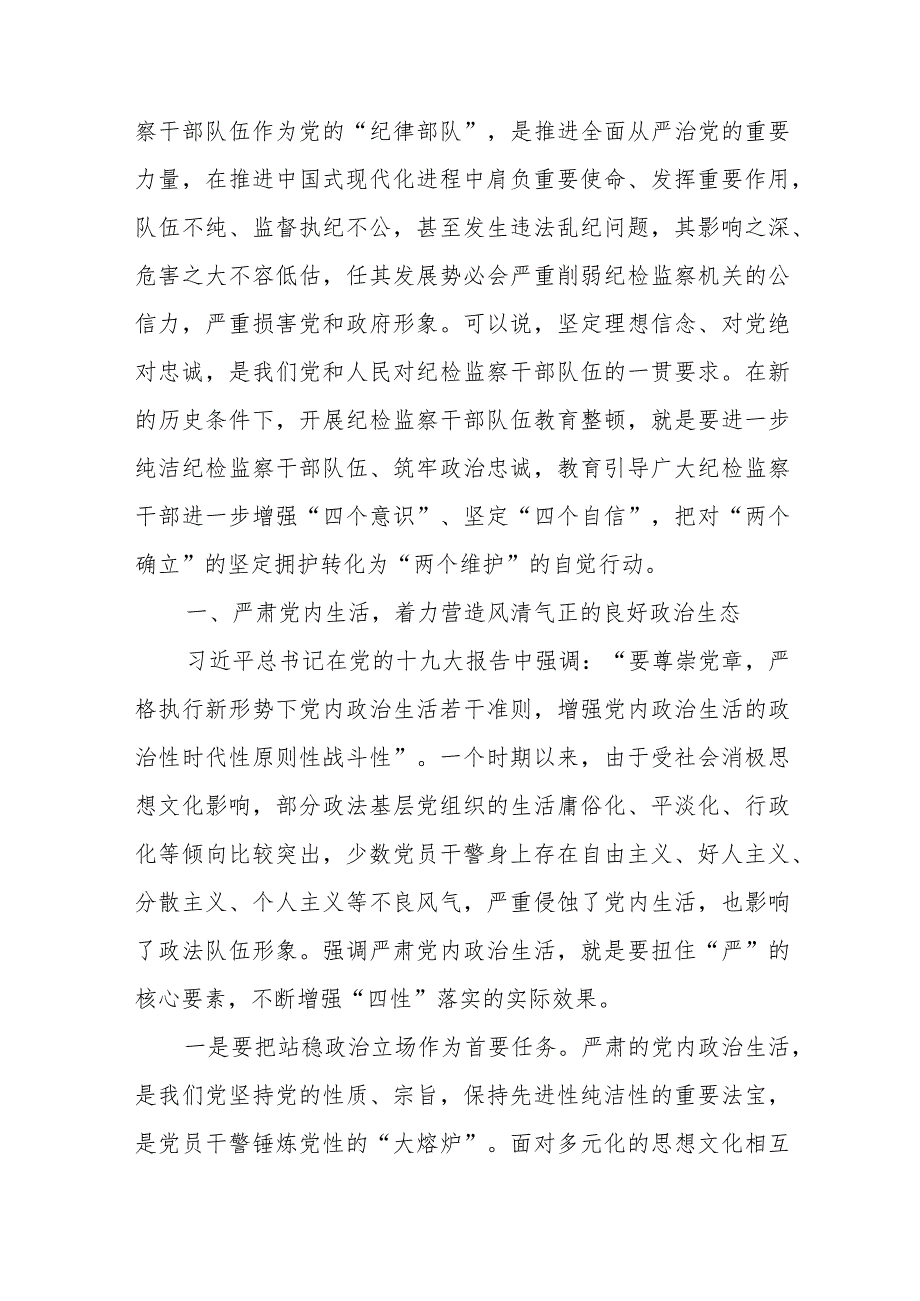 察干部队伍作为党的“纪律部队”，是推进全面从严治党的重要
力量，在推进中国式现代化进程中肩负重要使命、发挥重要作用，
队伍不纯、监督执纪不公，甚至发生违法乱纪问题，其影响之深、
危害之大不容低估，任其发展势必会严重削弱纪检监察机关的公
信力，严重损害党和政府形象。可以说，坚定理想信念、对党绝
对忠诚，是我们党和人民对纪检监察干部队伍的一贯要求。在新
的历史条件下，开展纪检监察干部队伍教育整顿，就是要进一步
纯洁纪检监察干部队伍、筑牢政治忠诚，教育引导广大纪检监察
干部进一步增强“四个意识”、坚定“四个自信”，把对“两个
确立”的坚定拥护转化为“两个维护”的自觉行动。
一、严肃党内生活，着力营造风清气正的良好政治生态
习近平总书记在党的十九大报告中强调：“要尊崇党章，严
格执行新形势下党内政治生活若干准则，增强党内政治生活的政
治性时代性原则性战斗性”。一个时期以来，由于受社会消极思
想文化影响，部分政法基层党组织的生活庸俗化、平淡化、行政
化等倾向比较突出，少数党员干警身上存在自由主义、好人主义、
分散主义、个人主义等不良风气，严重侵蚀了党内生活，也影响
了政法队伍形象。强调严肃党内政治生活，就是要扭住“严”的
核心要素，不断增强“四性”落实的实际效果。
一是要把站稳政治立场作为首要任务。严肃的党内政治生活，
是我们党坚持党的性质、宗旨，保持先进性纯洁性的重要法宝，
是党员干警锤炼党性的“大熔炉”。面对多元化的思想文化相互